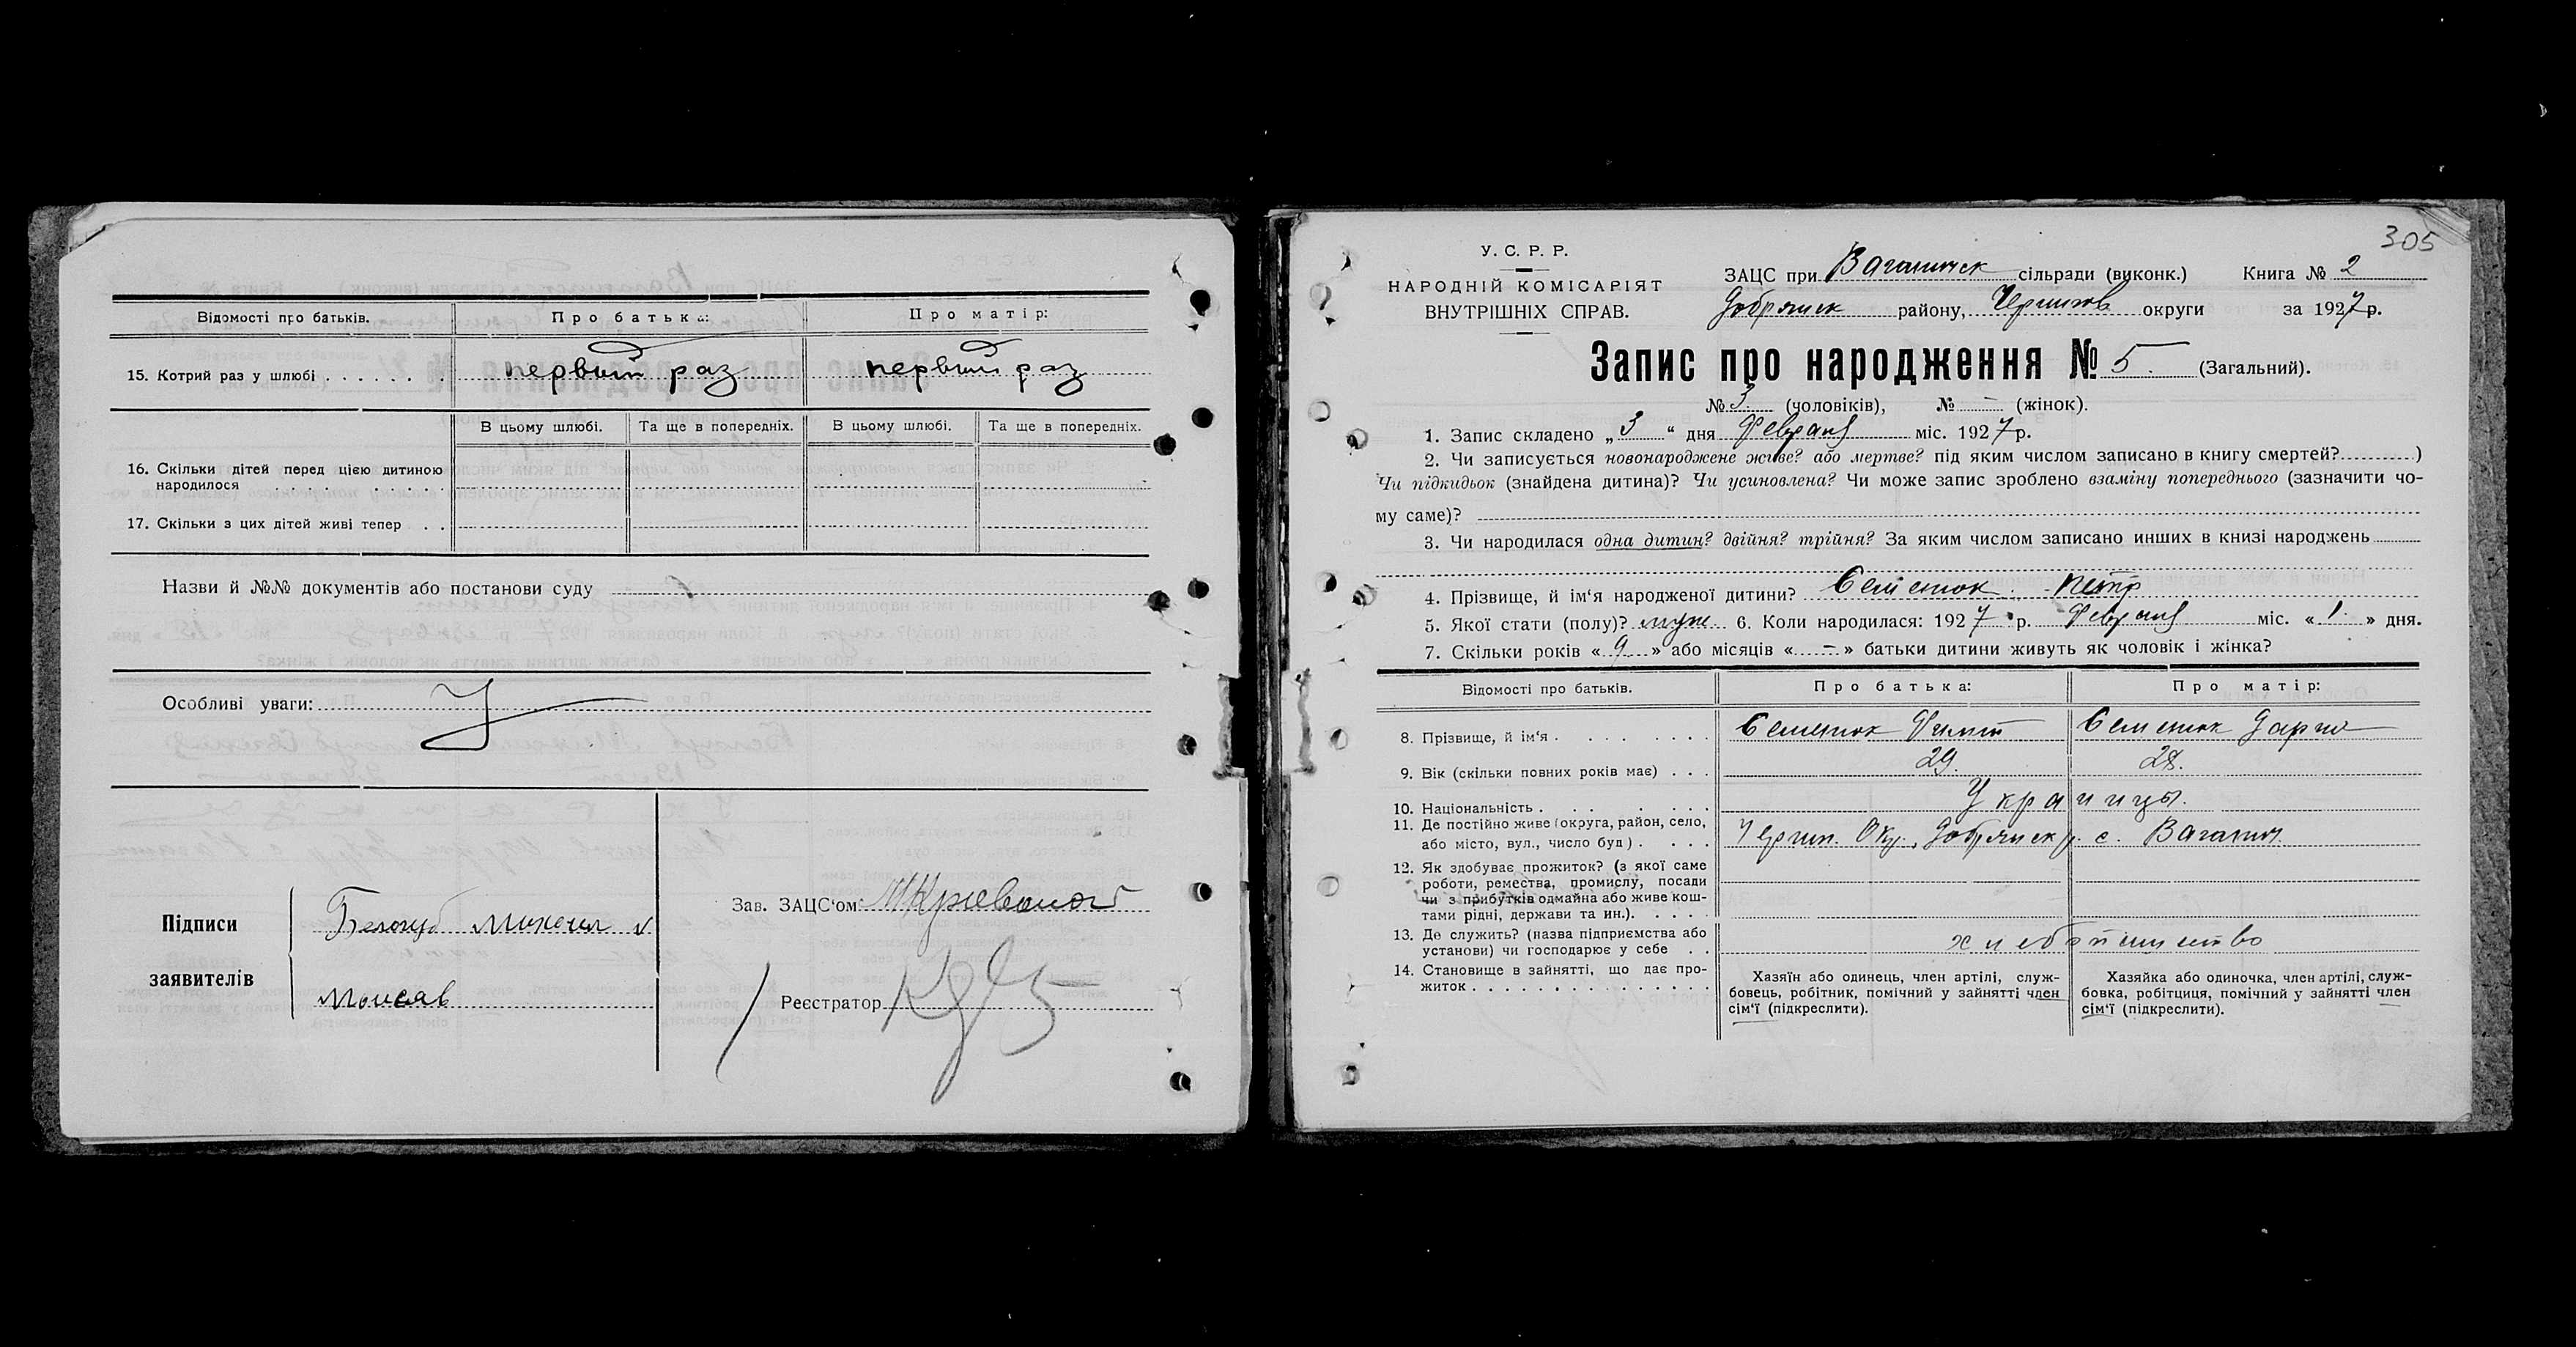 Відомості про батьків.
Про батька:
Про матір:
15. Котрий раз у шлюбі
первый раз
первый раз
В цьому шлюбі.
Та ще в попередніх.
В цьому шлюбі.
Та ще в попередніх.
16. Скільки дітей перед цією дитиною
народилося
17. Скільки з цих дітей живі тепер
Назви й №№ документів або постанови суду
Особливі уваги:
Підписи
заявителів
Моисеев
Зав. ЗАЦС‘ом:
Реєстратор
305
У. С. Р. Р.
НАРОДНІЙ КОМІСАРІЯТ
ВНУТРІШНІХ СПРАВ.
ЗАЦС при Ваганичск сільради (виконк.) Книга № 2
Добрянск району, Чернигов округи за 1927 р.
Запис про народження № 5. (Загальний).
№ 3 (чоловіків), № – (жінок).
1. Запис складено „ 3 “ дня Февраля міс. 1927 р.
2. Чи записується новонароджене живе? або мертве? під яким числом записано в книгу смертей? )
Чи підкидьок (знайдена дитина)? Чи усиновлена? Чи може запис зроблено взаміну попереднього (зазначити чо-
му саме)?
3. Чи народилася одна дитин? двійня? трійня? За яким числом записано инших в книзі народжень
4. Прізвище, й ім‘я народженої дитини? Семенюк Петр
5. Якої стати (полу)? муж 6. Коли народилася: 1927 р. Февраля міс. « 1 » дня.
7. Скільки років « 9 » або місяців « – » батьки дитини живуть як чоловік і жінка?
Відомості про батьків.
Про батька:
Про матір:
8. Прізвище, й ім‘я
Семенюк
Семенюк Дария
9. Вік (скільки повних років має)
29.
28.
10. Національність
Украинцы.
11. Де постійно живе (округа, район, село,
або місто, вул., число буд)
Черниг. Окр., Добрянск р. с. Ваганич.
12. Як здобуває прожиток? (з якої саме
роботи, ремества, промислу, посади
чи з прибутків одмайна або живе кош-
тами рідні, держави та ин.).
13. Де служить? (назва підприємства або
установи) чи господарює у себе
хлебопашество
14. Становище в зайнятті, що дає про-
житок
Хазяїн або одинець, член артілі, служ-
бовець, робітник, помічний у зайнятті член
сім‘ї (підкреслити).
Хазяйка або одиночка, член артілі, служ-
бовка, робітниця, помічний у зайнятті член
сім‘ї (підкреслити).